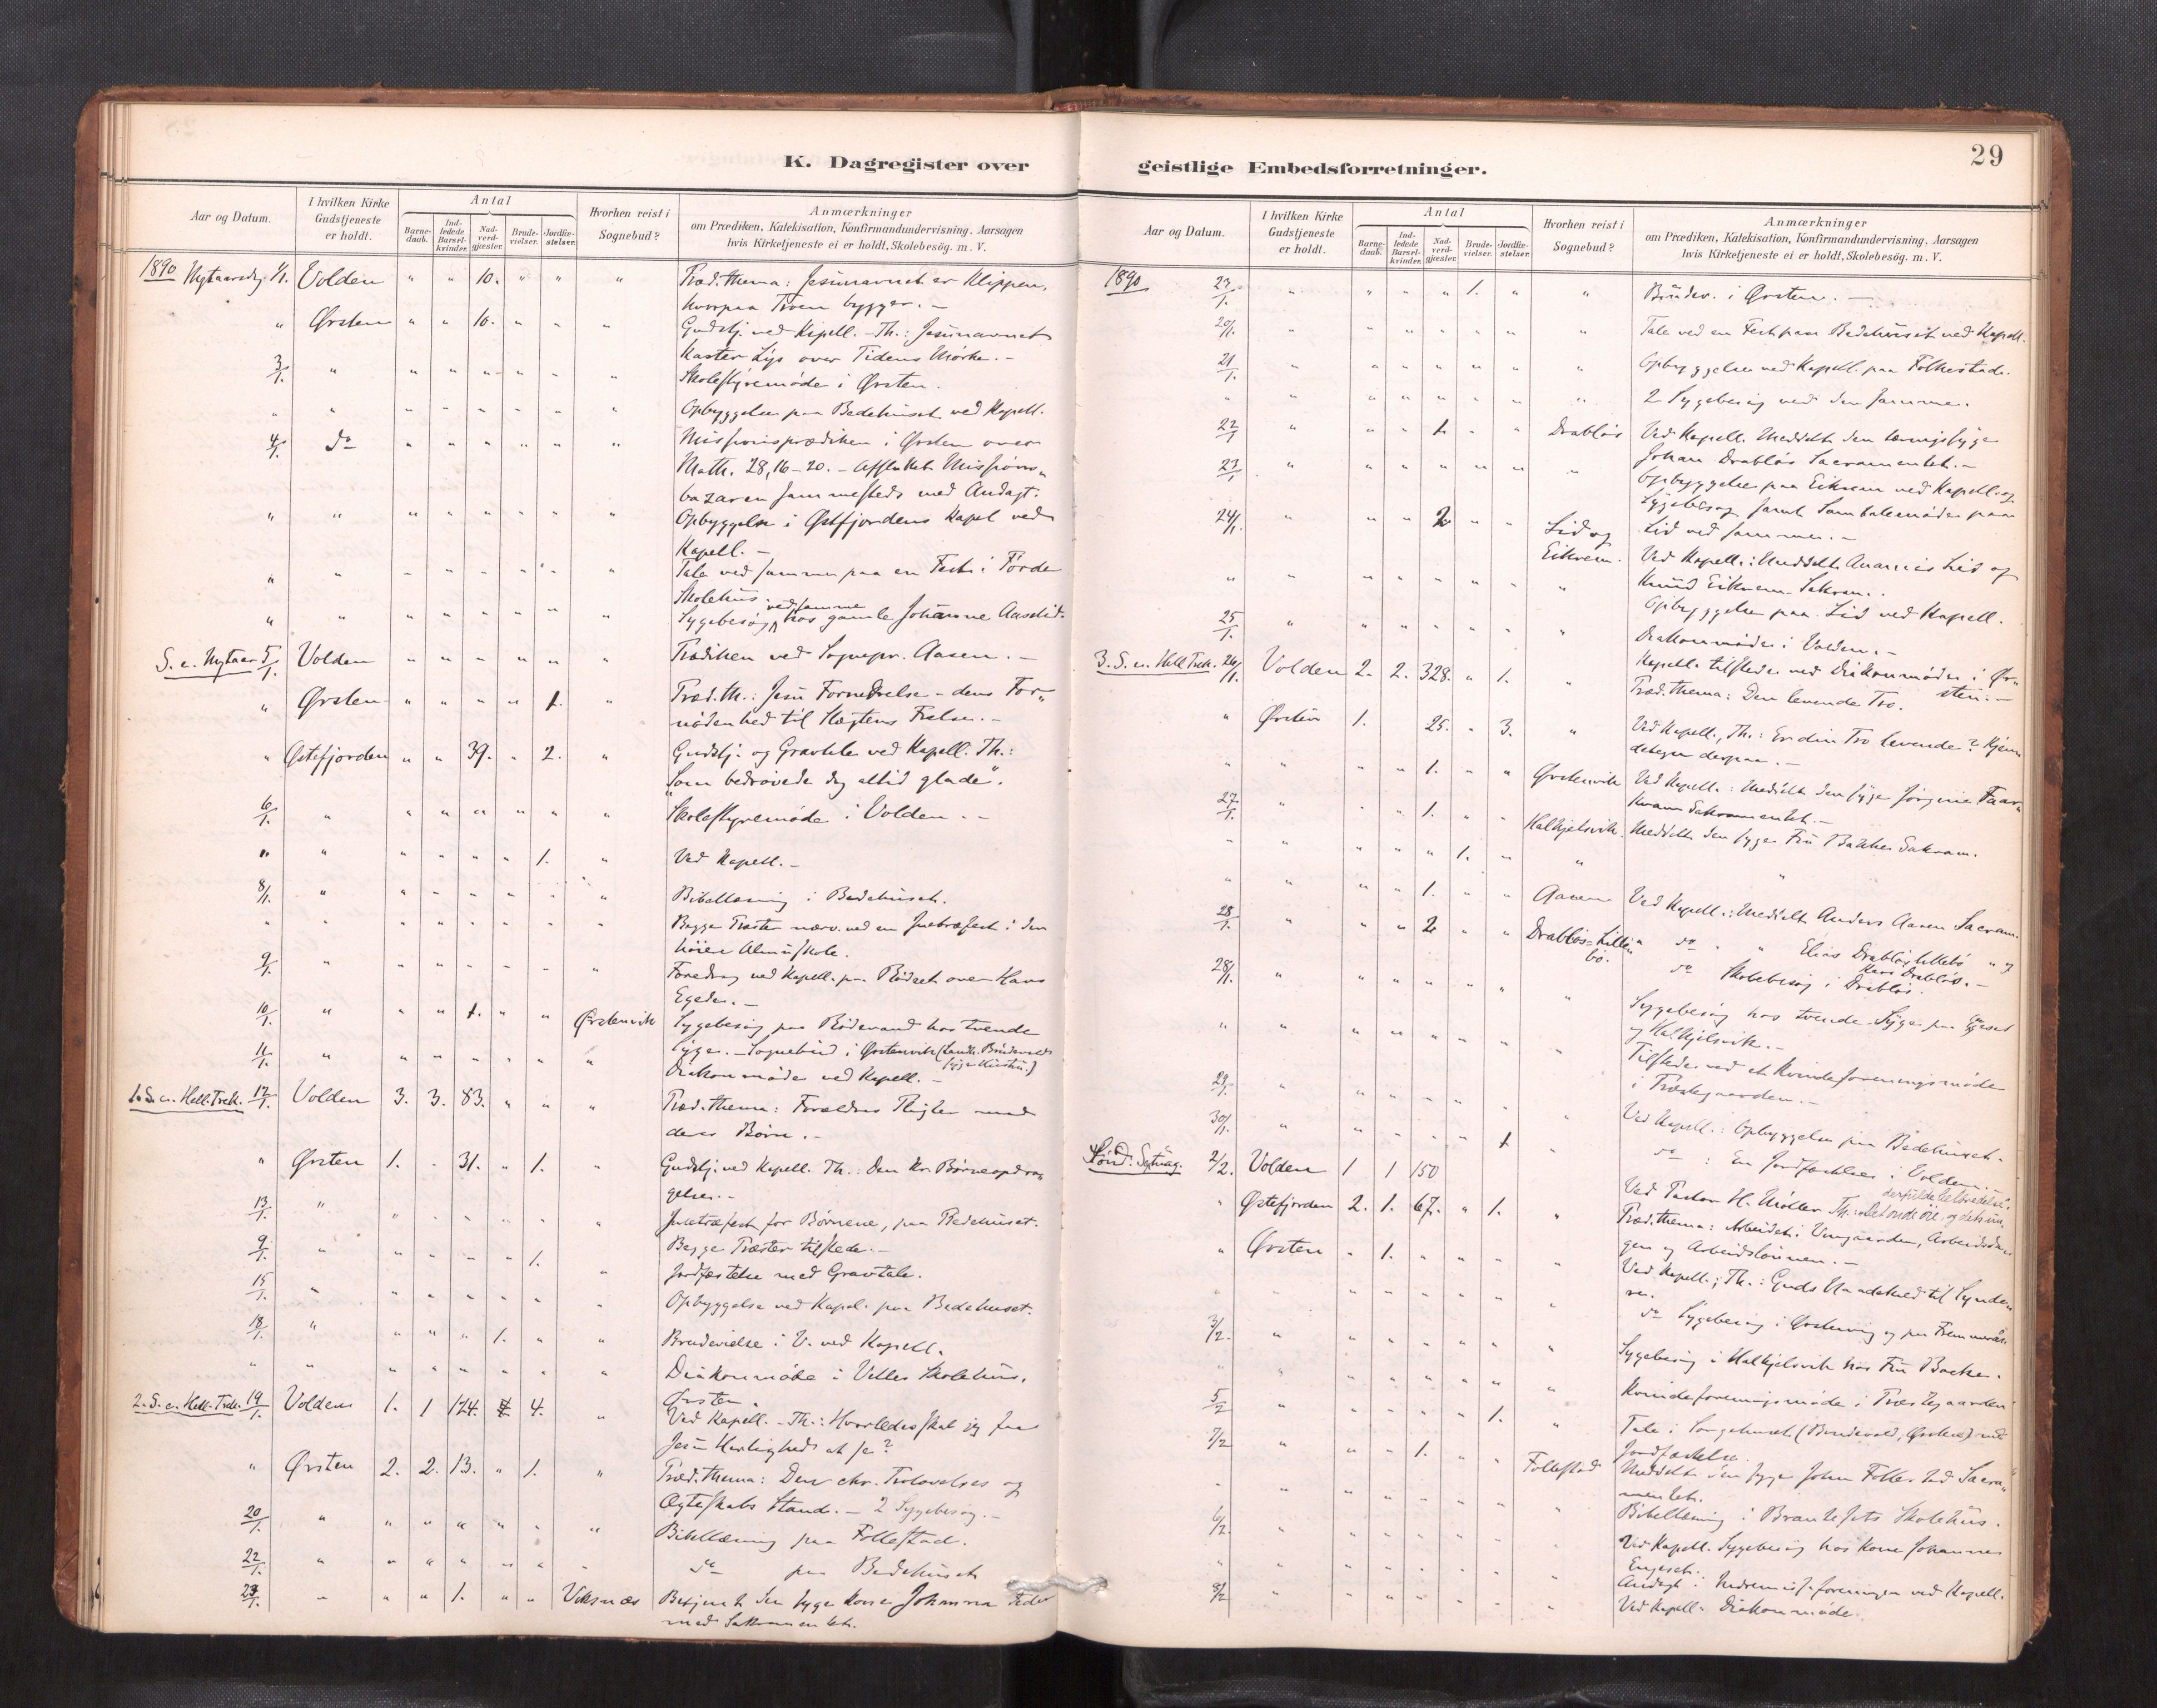 K. Dagregister over
Aar og Datum.
I hvilken Kirke Gudstjeneste er holdt.
Antal
Barne-daab.
Ind-ledede Barsel-kvinder.
Nad-verd-gjæster.
Brude-vielser.
Jordfæ-stelser.
Hvorhen reist i Sognebud?
Anmærkninger
om Prædiken, Katekisation, Konfirmandundervisning, Aarsagen
hvis Kirketjeneste ei er holdt, Skolebesög. m. V.
1890 Nytaarsdag 1/1. Volden " " 10. " " " Præd. thema: Jesunavnet er Klippen,
hvorpaa Troen bygger. -
" Ørsten " " 10. " " " Gudstj. ved Kapell. - Th.: Jesunavnet
kaster Lys over Tidens Mörke. -
3/1. " " " " " " " Skolestyremöde i Ørsten.
" " " " " " " " Opbyggelse paa Bedehuset ved Kapell.
4/1. do " " " " " " Missionsprædiken i Ørsten over
Math. 28, 16-20. - Afsluttet Missions-
bazaren sammesteds med Andagt.
" " " " " " " " Opbyggelse i Østfjordens Kapel ved
Kapell. -
" " " " " " " " Tale ved samme paa en Fest i Förde
Skolehus.
" " " " " " " " Sygebesög ved samme hos gamle Johanne Aaslid.
S. e. Nytaar 5/1. Volden " " " " " " Prædiken ved Sognepr. Aasen. -
" Ørsten " " " " 1. " Præd. th.: Jesu Fornedrelse - dens For-
nödenhed til Slægtens Frelse. -
" Østefjorden " " 39. " 2. " Gudstj. og Gravtale ved Kapell. Th.:
"Som bedrövede dog altid glade".
6/1. " " " " " " " Skolestyremöde i Volden. -
" " " " " " 1. " Ved Kapell. -
8/1. " " " " " " " Bibellæsning i Bedehuset.
" " " " " " " " Begge Præster nærv. ved en Juletræfest i den
höiere Almuskole.
9/1. " " " " " " " Foredrag ved Kapell. paa Rödset over Hans
Egede. -
10/1. " " " 1. " " Ørstenvik Sygebesög paa Rödevand hos tvende
Syge. - Sognebud i Ørstenvik (Landh. Brudevolds
syge Hustru)
11/1. " " " " " " " Diakonmöde ved Kapell. -
1. S. e. Hell. Trek. 12/1. Volden 3. 3. 83. " " " Præd. thema: Forældres Pligter mod
deres Börn. -
" Ørsten 1. " 31. " 1. " Gudstj. ved Kapell. Th.: Den kr. Börneopdra-
gelse. -
13/1. " " " " " " " Juletræfest for Börnene, paa Bedehuset.
Begge Præster tilstede. -
9/1. " " " " " 1. " Jordfæstelse med Gravtale.
15/1. " " " " " " " Opbyggelse ved Kapel. paa Bedehuset.
18/1. " " " " 1. " " Brudevielse i V. ved Kapell.
" " " " " " " " Diakonmöde i Velle Skolehus,
Ørsten.
2. S. e. Hell. Trek. 19/1. Volden 1. 1 124. 4. " Ved Kapell. - Th.: Hvorledes skal jeg faa
Jesu Herlighed at se?
" Ørsten 2. 2. 13. " 1. " Præd. thema: Den chr. Trolovelses og
Ægteskabs Stand. - 2 Sygebesög. -
20/1. " " " " " " " Bibellæsning paa Follestad.
22/1. " " " " " " " do paa Bedehuset
23/1. " " " 1. " " Viksnæs Besjent den syge Kone Johanna
med Sakramentet.
geistlige Embedsforretninger.
29
Aar og Datum.
I hvilken Kirke Gudstjeneste er holdt.
Antal
Barne-daab.
Ind-ledede Barsel-kvinder.
Nad-verd-gjæster.
Brude-vielser.
Jordfæ-stelser.
Hvorhen reist i Sognebud?
Anmærkninger
om Prædiken, Katekisation, Konfirmandundervisning, Aarsagen
hvis Kirketjeneste ei er holdt, Skolebesög. m. V.
1890 23/1. " " " " 1. " " Brudev. i Ørsten. -
20/1. " " " " " " " Tale ved en Fest paa Bedehuset ved Kapell.
21/1. " " " " " " " Opbyggelse ved Kapell. paa Folkestad.
" " " " " " " " 2 Sygebesög ved den samme.
22/1 " " " 1. " " Drabløs Ved Kapell. Meddelt den tæringssyge
Johan Drabløs Sacramentet. -
23/1. " " " " " " " Opbyggelse paa Eikrem ved Kapell. og
Sygebesög samt Samtalemöde paa
Lid ved samme. -
24/1. " " " 2 " " Lid og Eikrem. Ved Kapell.: Meddelt Ananias Lid og
Knud Eikrem Sakram.
" " " " " " " " Opbyggelse paa Lid ved Kapell.
25/1. " " " " " " " Diakonmöde i Volden. -
Kapell. tilstede ved Diakonmöde i Ør-
sten. -
3. S. e. Hell Trek. 26/1. Volden 2. 2. 328. " 1. " Præd. thema: Den levende Tro.
" Ørsten 1. 25. " 3. " Ved Kapell., Th.: Er din Tro levende? Kjen-
detegn derpaa. -
" " " " 1. " " Ørstenvik Ved Kapell.: Meddelt den syge Jörgine Faar-
kvam Sakramentet. -
27/1. " " " 1. " " Halkjelsvik. Meddelt den syge Fru Bakke Sakram.
" " " " " 1. " " "
" " " " 1. " " Aasen Ved Kapell.: Meddelt Anders Aasen Sacram.
28/1. " " " 2 " " Drabløs-Lillebö. " do " " Elias Drabløs Lillebö " og
Hans Drabløs. -
28/1. " " " " " " " do Skolebesög i Drabløs.
" " " " " " " " Sygebesög hos tvende Syge paa Egeset
og Halkjelsvik. -
Tilstede ved et Kvindeforeningsmöde
i Præstegaarden. -
29/1. " " " " " " " Ved Kapell.: Opbyggelse paa Bedehuset.
30/1. " " " " " 1 do : En Jordfæstelse i Volden. -
Sönd. Septuag. 2/2. Volden 1 1 150 Ved Pastor H. Möller Th.: Det onde öie og dets un-
derfulde helbredelse.
" Østefjorden 2. 1. 67. " 1. " Præd. thema: Arbeidet i Vingaarden, Arbeidsda-
gen og Arbeidslönnen. -
" Ørsten " 1. " " " " Ved Kapell.; Th.: Guds Naadekald til Synde-
re.
" " " " " " " do Sygebesög i Ørstenvig og paa
3/2. " " " " " " " Sygebesög i Halkjelsvik hos Fru Backe.
" " " " " " " " Kvindeforeningsmöde i Præstegaarden
5/2 " " " " " 1. " Tale i Sörgehuset (Brudevold, Ørsten) med
Jordfæstelse.
7/2 " " " 1. " " Follestad Meddelt den syge Johan Follestad Sacra-
mentet.
" " " " " " " " Bibellæsning i Skolehus.
6/2 " " " " " " " Ved Kapell. Sygebesög hos Kone Johanne
Engeset.
" " " " " " " " Andagt i Indremiss.foreningen ved Kapell.
8/2 " " " " " " " Ved Kapell. Diakonmöde.